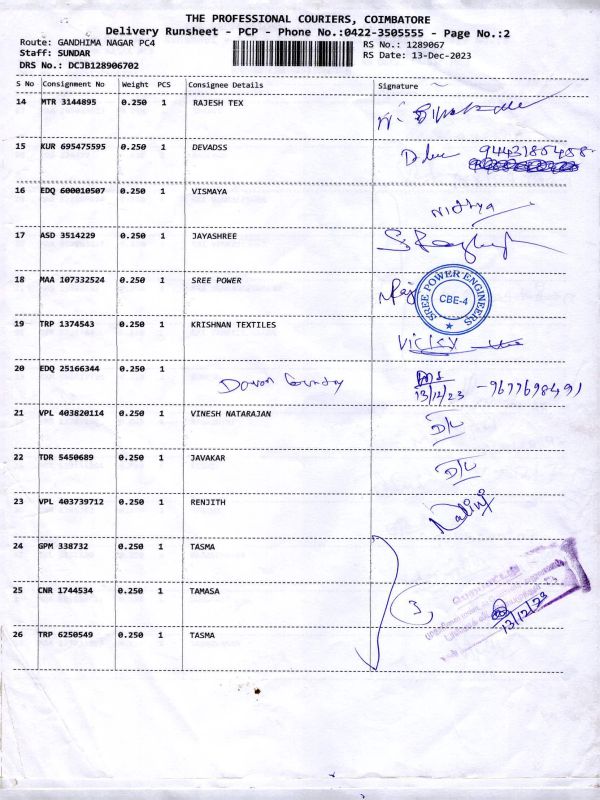 THE PROFESSIONAL COURIERS, COIMBATORE
Delivery Runsheet - PCP - Phone No.:0422-3505555 - Page No.:2
Route: GANDHIMA NAGAR PC4 RS No.: 1289067
Staff: SUNDAR RS Date: 13-Dec-2023
DRS No.: DCJB128906702
S No Consignment No Weight PCS Consignee Details Signature
14 MTR 3144895 0.250 1 RAJESH TEX
15 KUR 695475595 0.250 1 DEVADSS 9443185458
16 EDQ 600010507 0.250 1 VISMAYA Nithya
17 ASD 3514229 0.250 1 JAYASHREE
18 MAA 107332524 0.250 1 SREE POWER Raj SREE POWER ENGINEERS CBE-4
19 TRP 1374543 0.250 1 KRISHNAN TEXTILES Vicky
20 EDQ 25166344 0.250 1 13/12/23 -9677698491
21 VPL 403820114 0.250 1 VINESH NATARAJAN D/L
22 TDR 5450689 0.250 1 JAVAKAR D/L
23 VPL 403739712 0.250 1 RENJITH Nalini
24 GPM 338732 0.250 1 TASMA
25 CNR 1744534 0.250 1 TAMASA 3 13/12/23
26 TRP 6250549 0.250 1 TASMA